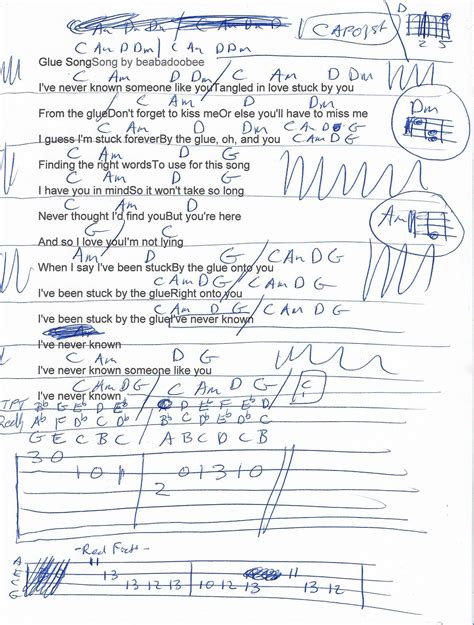 CAPO 1st D
2 5
C Am D Dm / C Am D Dm
Glue SongSong by beabadoobee
C Am D Dm / C Am D Dm
I've never known someone like youTangled in love stuck by you
C Am D Dm
From the glueDon't forget to kiss meOr else you'll have to miss me
Dm
C Am D Dm C Am D G
I guess I'm stuck foreverBy the glue, oh, and you C Am D G
C Am
Finding the right wordsTo use for this song
D G
I have you in mindSo it won't take so long
C Am
Never thought I'd find youBut you're here
Am
D G
And so I love youI'm not lying
Am D G / C Am D G
When I say I've been stuckBy the glue onto you
C Am D G / C Am D G
I've been stuck by the glueRight onto you
C Am D G / C Am D G
I've been stuck by the glueI've never known
I've never known
C Am D G
I've never known someone like you
C Am D G / C Am D G / C
I've never known
TPT Bb G Eb D Eb / D Eb F Eb D
Ab F Db C Db / Bb C Db C
G E C B C / A B C D C B
3 0 1 0 1 0 1 3 1 0
2
- Red Fats -
A
E
C
G
11 13 13 12 13 10 12 13 11 13 12